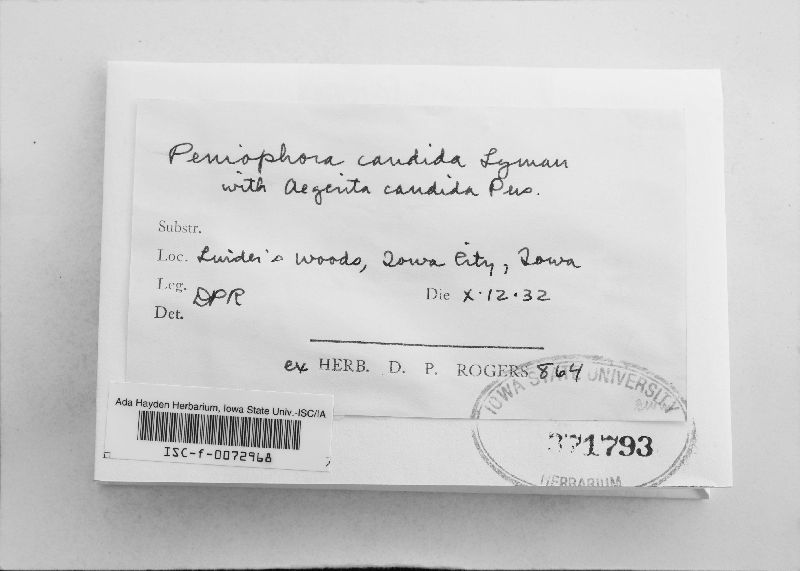 Peniophora candida Lyman
with Aegerita candida Pers.
Substr.
Loc. Linder's Woods, Iowa City, Iowa
Leg. DPR
Die X·12·32
Det.
ex HERB. D. P. ROGERS 864
IOWA STATE UNIVERSITY
371793
HERBARIUM
Ada Hayden Herbarium, Iowa State Univ.-ISC/IA
ISC-f-0072968